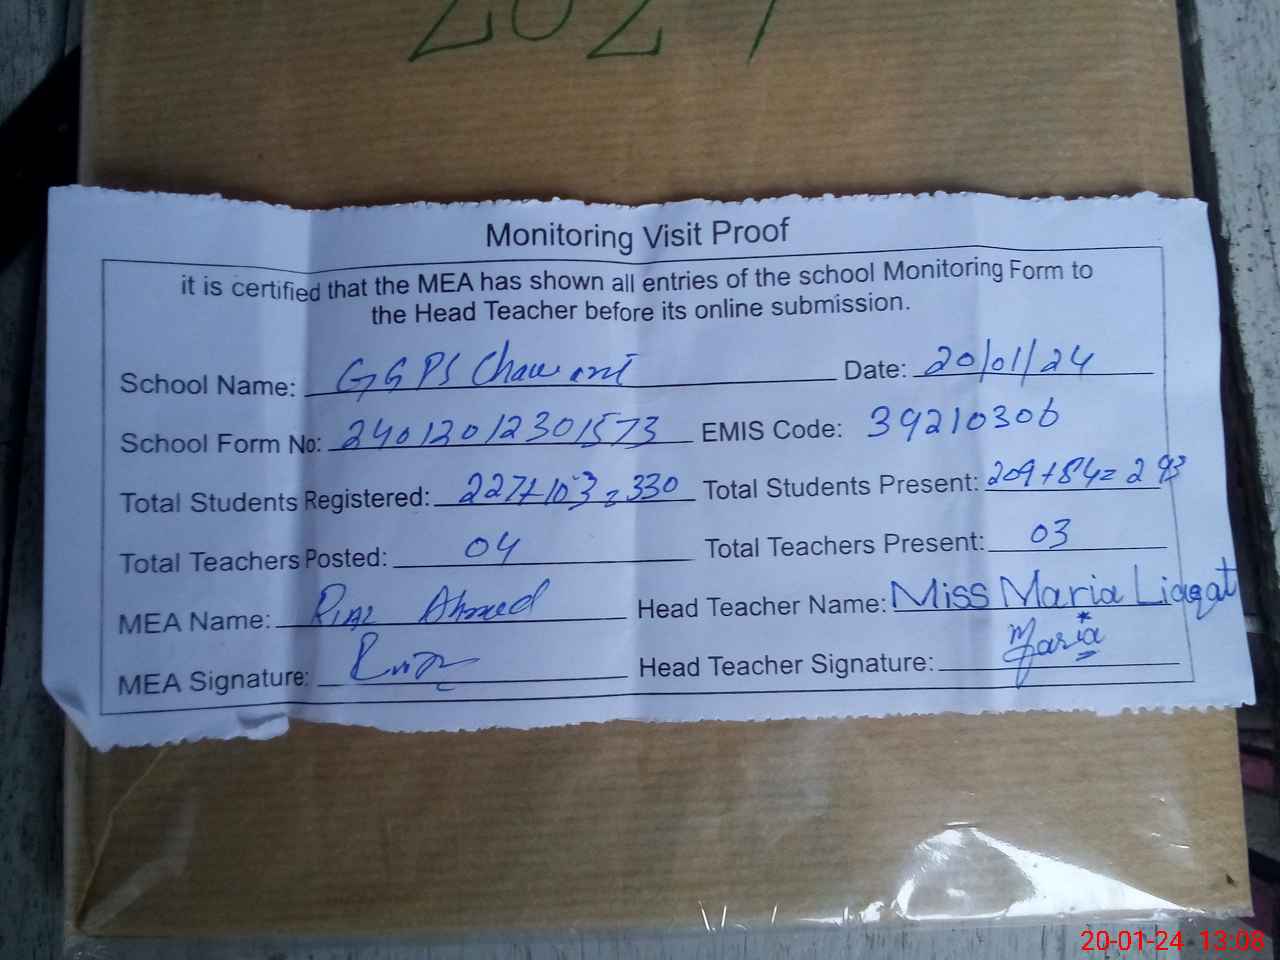 2024
Monitoring Visit Proof
it is certified that the MEA has shown all entries of the school Monitoring Form to
the Head Teacher before its online submission.
School Name: GGPS Date: 20/01/24
School Form No: 24012012301573 EMIS Code: 39210306
Total Students Registered: 227+103=330 Total Students Present: 209+84=293
Total Teachers Posted: 04 Total Teachers Present: 03
MEA Name: Riaz Ahmed Head Teacher Name: Miss Maria Liaqat
MEA Signature: Head Teacher Signature: Maria
20-01-24 13:08